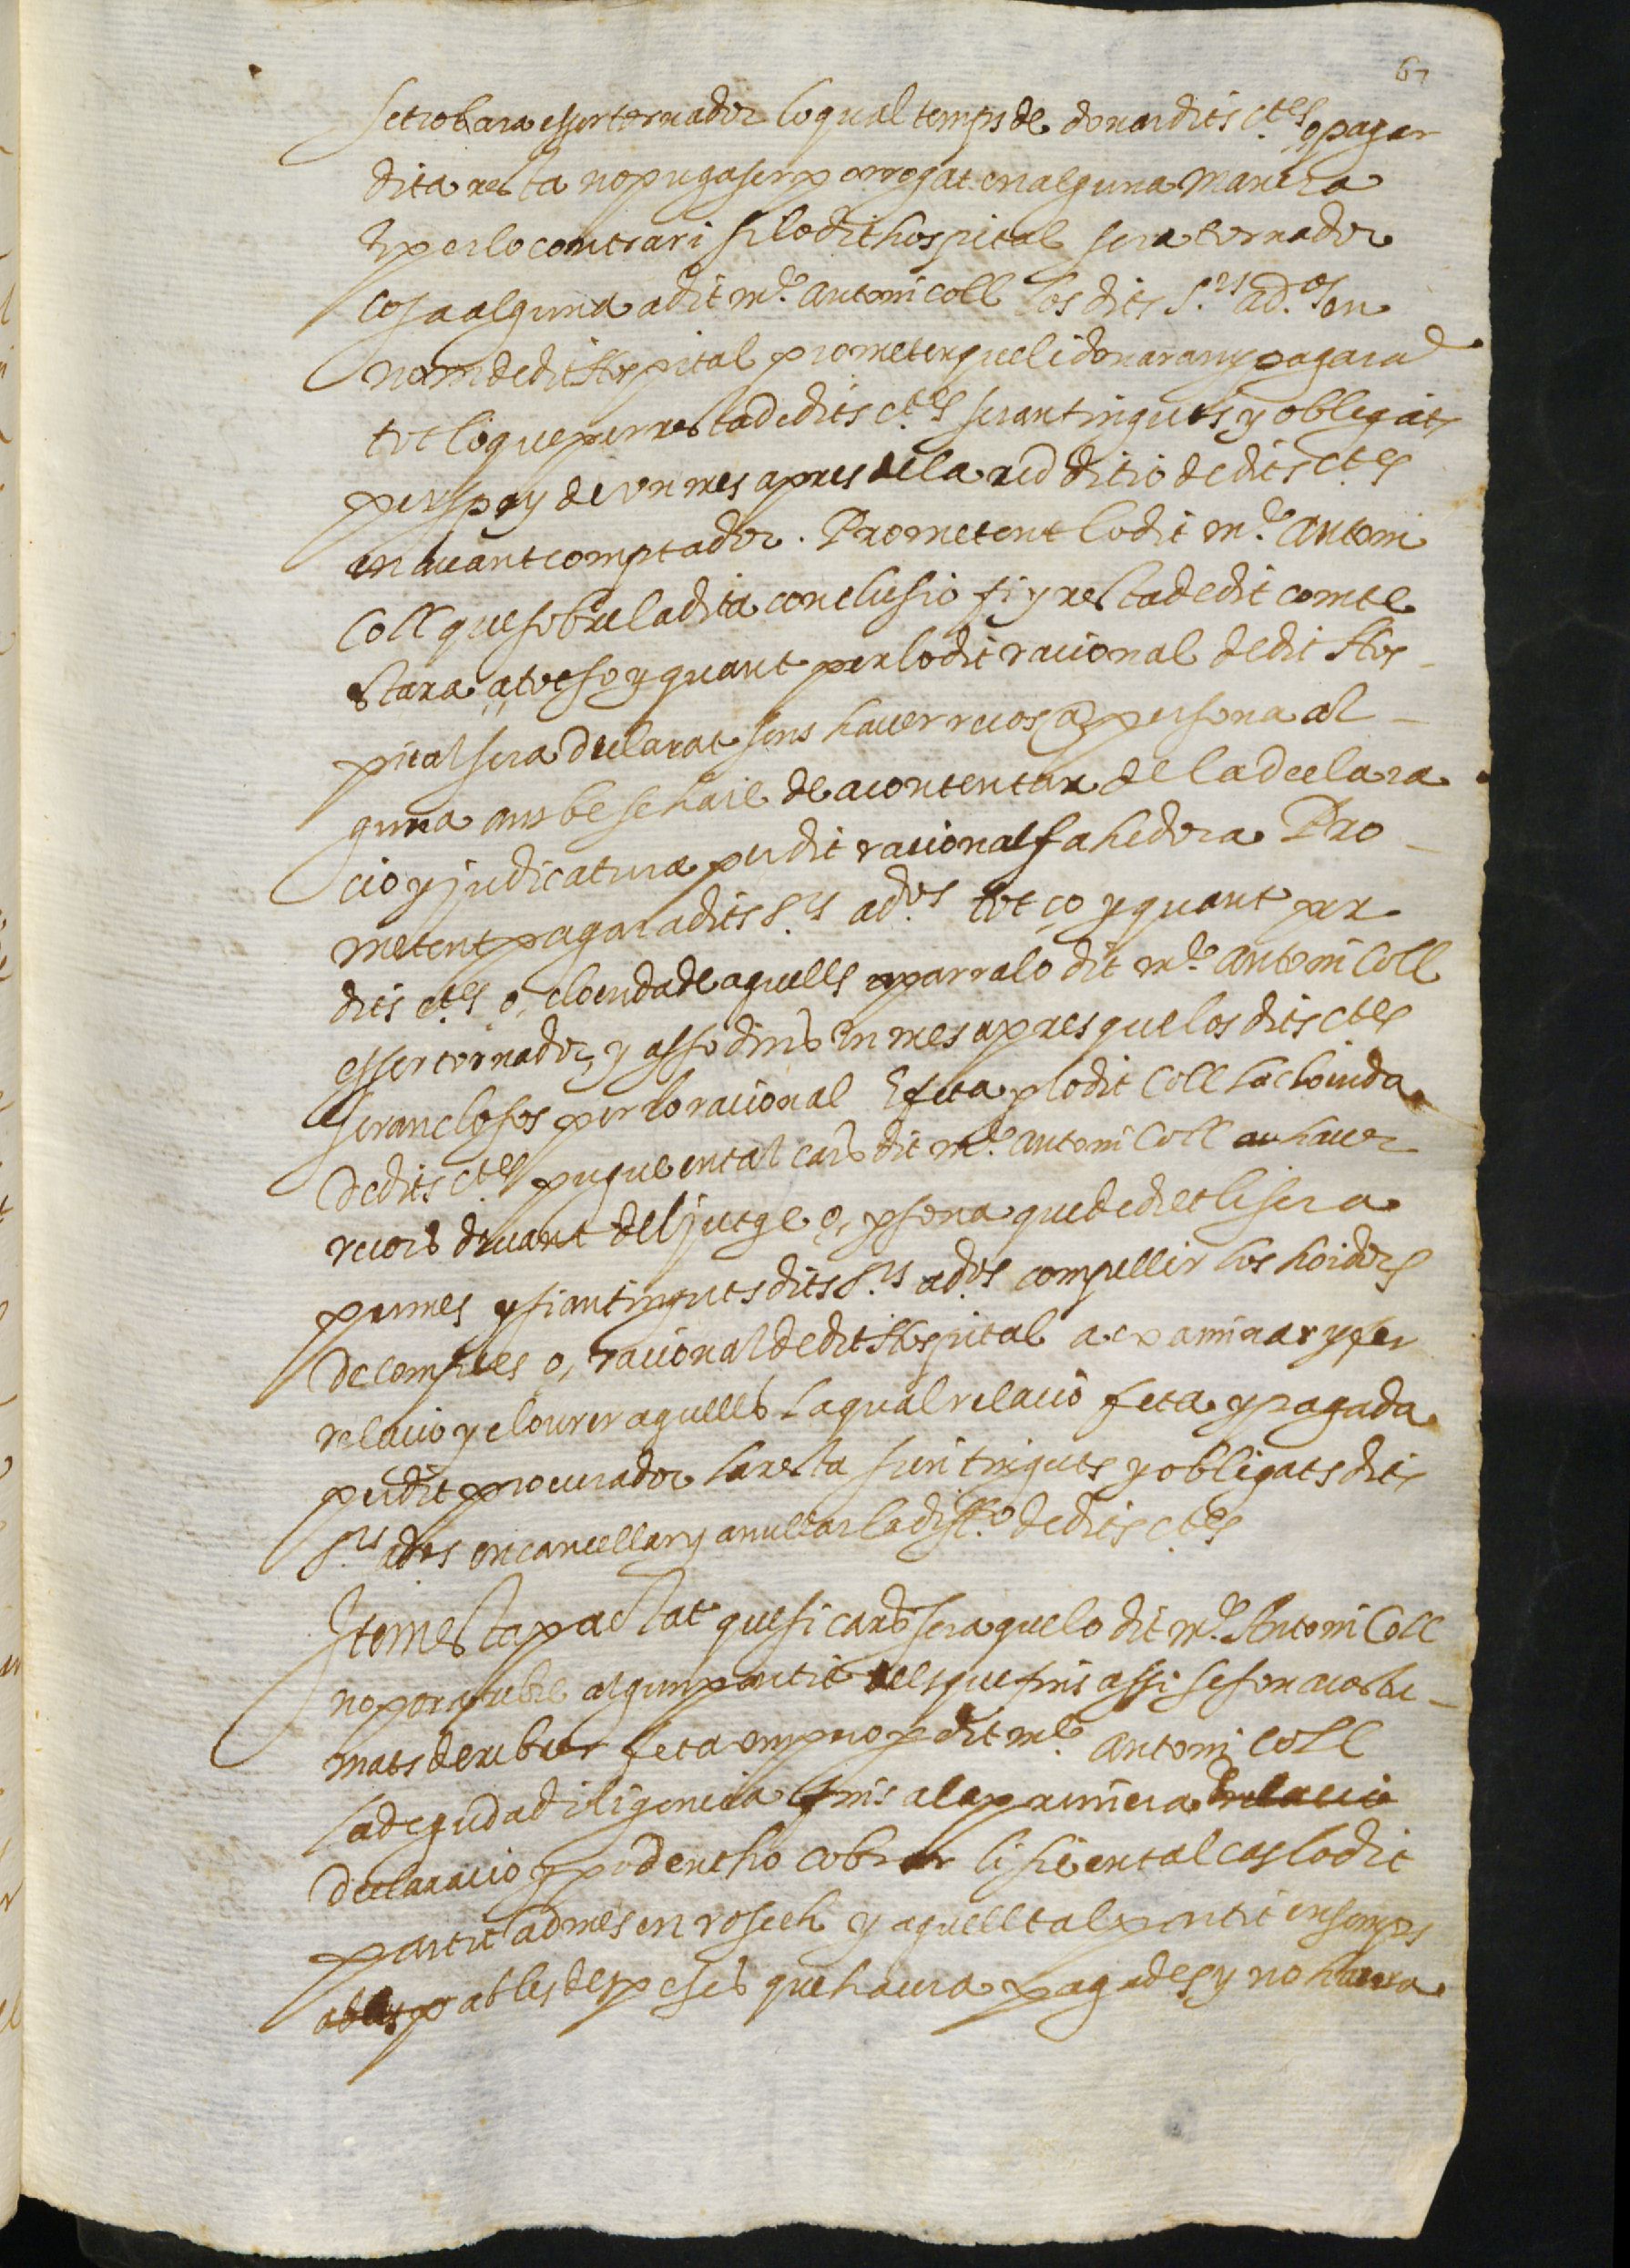 67
se trobara esser tornador lo qual temps de donar dits c.tes o pagar
dita resta no puga ser porrogat en alguna manera
E per lo contrari si lo dit hospital sera tornador
cosa alguna a dit m.º antoni coll los dits S.rs ad.ors en
nom de dit Hospital prometen que li donaran y pagaran
tot lo que per resta de dits c.tes seran tinguts y obligats
per spay de un mes apres de la redditio de dits c.tes
en auant comptador. Prometent lo dit m.º antoni
Coll que sobre la dita conclusio fi y resta de dit comte
stara a tot so y quant per lo dit racional de dit Hos-
pital sera declarat sens hauer recos a persona al-
guna ans be se haie de acontentar de la declara
cio y judicatura per dit racional fahedora Pro-
metent pagar a dits S.rs ad.ors tot ço y quant per
dits c.tes o, cloenda de aquells apparra lo dit m.º antoni Coll
esser tornador, y asso dins un mes apres que los dits c.tes
seran closos per lo racional E feta p lo dit Coll la cloenda
de dits c.tes pugue en tal cars dit m.º antoni Coll hauer
recors deuant del jutge o, psona que de dret li sera
permes y sian tinguts dits S.rs ad.ors compellir los hoidors
de comptes o, racional de dit Hospital a examinar y fer
relacio y clourer aquells la qual relacio feta y pagada
per dit procurador la resta sien tinguts y obligats dits
S.rs ad.ors en cancellar y anullar la dis.ª de dits c.tes
Item esta pactat que si cars sera que lo dit m.º Antoni Coll
no pora rebre algun partit dels que fins assi se son acostu-
mats de rebrer feta empero per dit m.º antoni Coll
la deguda diligencia fins a la primera relacio
declaracio y podentho cobrar li sie en tal cas lo dit
partit admes en rosech y aquell tal partit ensemps
ab les despeses que haura pagades y no haura